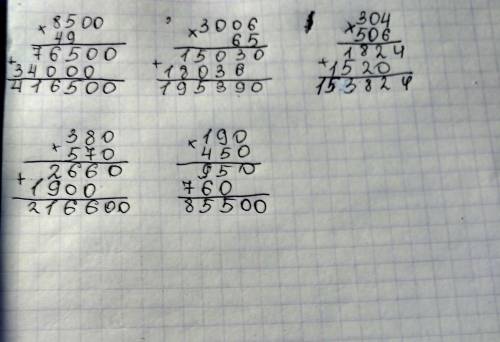 × 8500
49
76500
+
34000
416500
× 3006
65
15030
+
18036
195390
× 304
506
1824
+
1520
153824
× 380
570
2660
+
1900
216600
× 190
450
950
760
85500